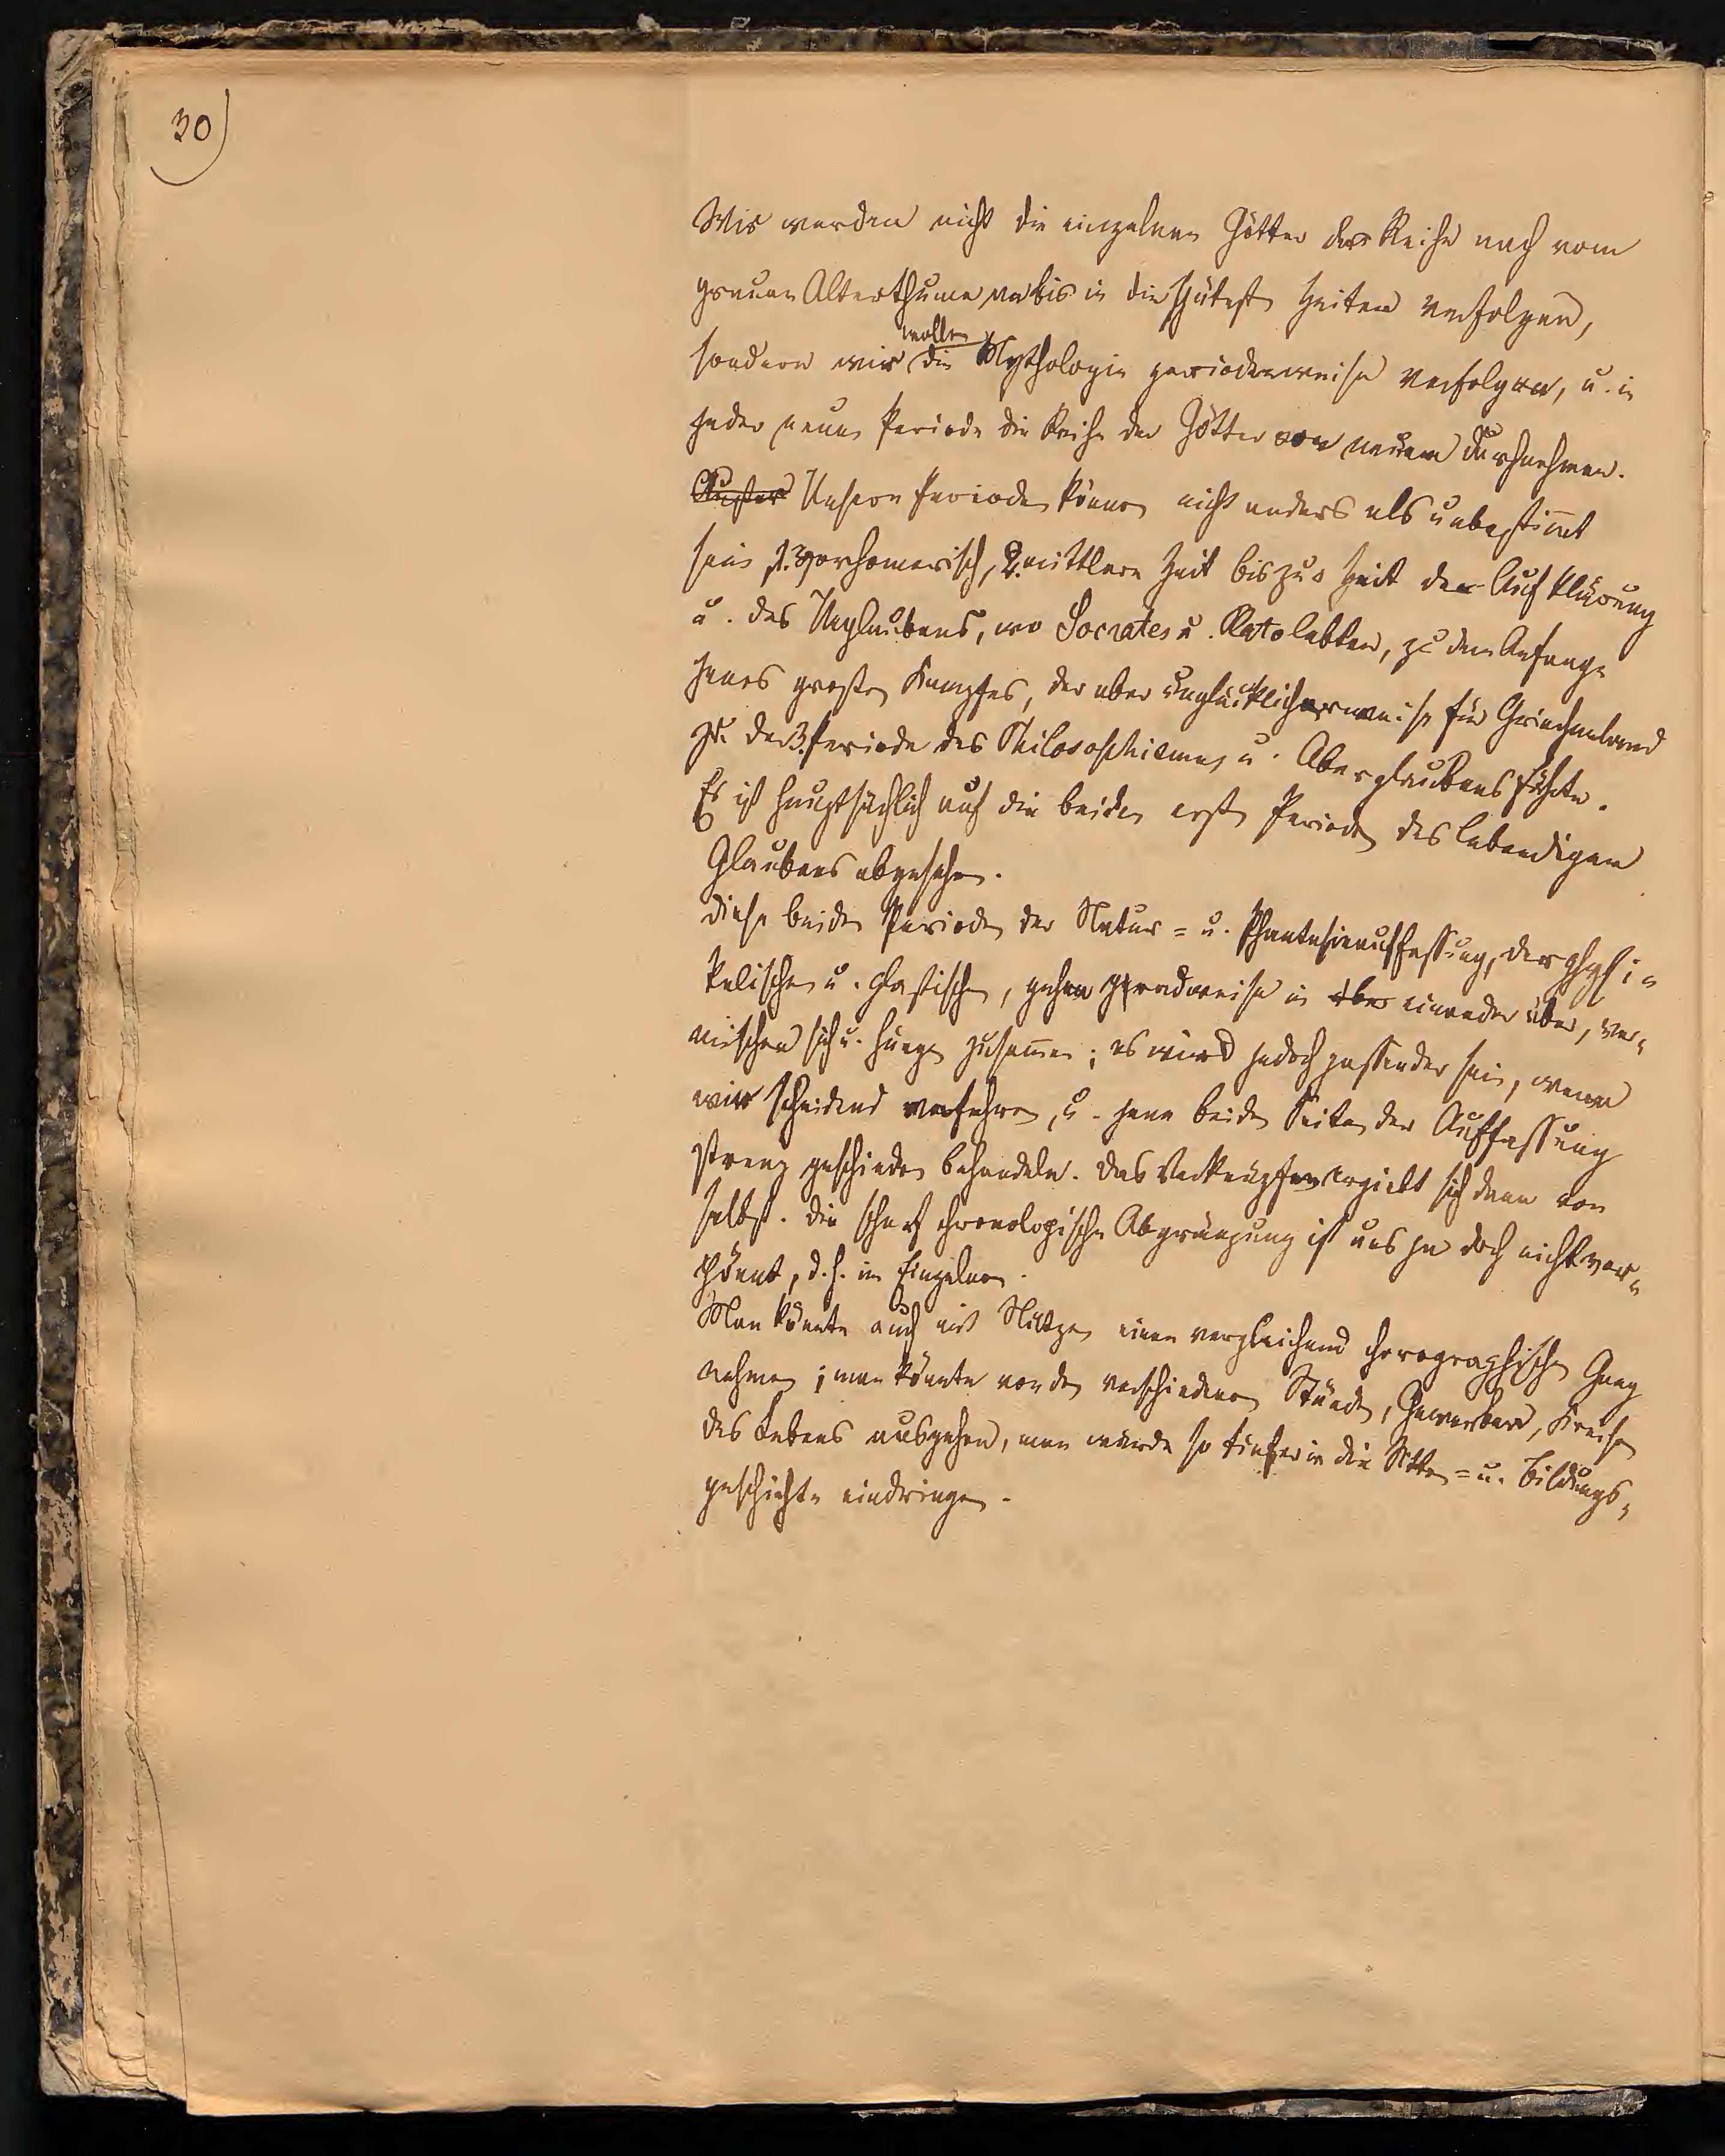 30)
Wir werden nicht die einzelnen Götter der Reihe nach vom
grauen Alterthume an bis in die spätesten Zeiten verfolgen,
wollen
sondern wir die Mythologie periodenweise verfolgen, u. in
jeder neuen Periode die Reihe der Götter von neuem durchnehmen.
Unsere Perioden können nicht anders als unbestimt
sein 1. vorhomerisch, 2. mittlere Zeit bis zur Zeit der Aufklärung
u. des Unglaubens, wo Socrates u. Plato lebten, zu dem Anfange
jenes großen Kampfes, der aber unglücklicherweise für Griechenland
zu der 3. Periode des Philosophismus u. Aberglaubens führte.
Es ist hauptsächlich auf die beiden ersten Perioden des lebendigen
Glaubens abgesehen.
Diese beiden Perioden der Natur= u. Phantasieauffassung, der physi=
kalischen u. plastischen, gehen gradweise in einander über, ver=
mischen sich u. hängen zusammen; es wird jedoch passender sein, wenn
wir scheidend verfahren, u. jene beiden Seiten der Auffassung
streng geschieden behandeln. Das Verknüpfen ergiebt sich dann von
selbst. Die scharf chronologische Abgränzung ist uns ja doch nicht ver=
gönnt, d. h. im Einzelnen.
Man könnte auch mit Nutzen einen vergleichend chorographischen Gang
nehmen; man könnte von den verschiedenen Ständen, Gewerben, Kreisen
des Lebens ausgehen, man würde so tiefer in die Sitten= u. Bildungs=
geschichte eindringen.